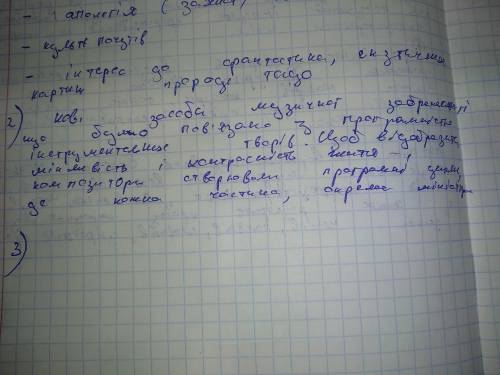 - апологія (
- культ почуттів
- інтерес до фантастики, екзотичних
картин природи тощо
2) нові засоби музичної зображенності
що було пов'язано з програмністю
інструментальних творів. Щоб відобразити
мінливість і контрасність життя -
композитори створювали програмні цикли
де кожна частина, окрема мініатюра
3)